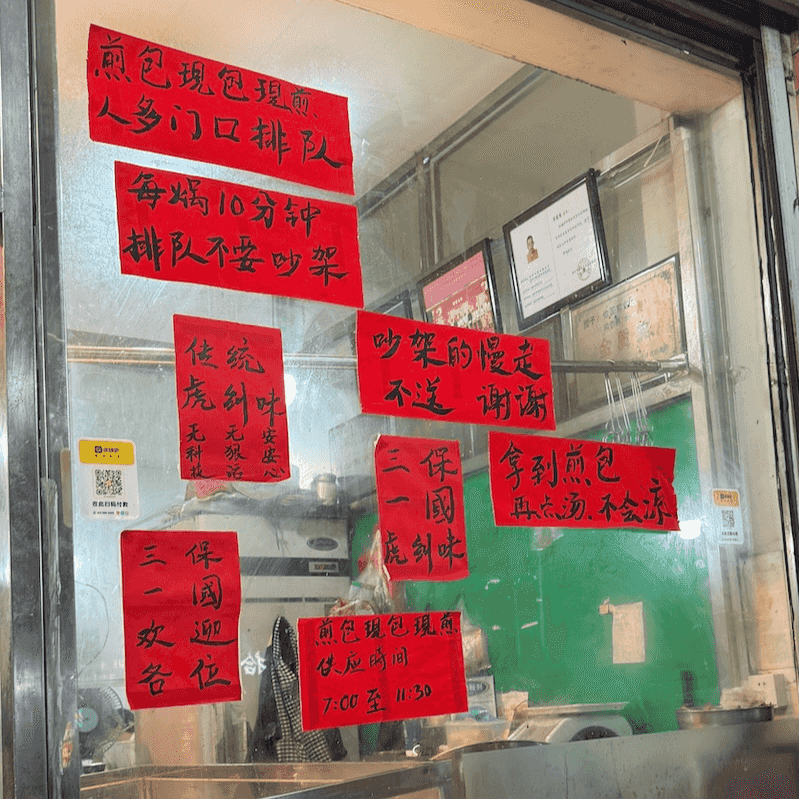 煎包現包現煎
人多门口排队
每焗10分钟
排队不要吵架
传统
虎刽味
无科技
无狠活
安安心
吵架的慢走
不送 谢谢
三一
保國
虎刽味
拿到煎包
再点汤.不会凉
三一
保國
欢迎
各位
煎包現包現煎
供应時间
7:00 至 11:30